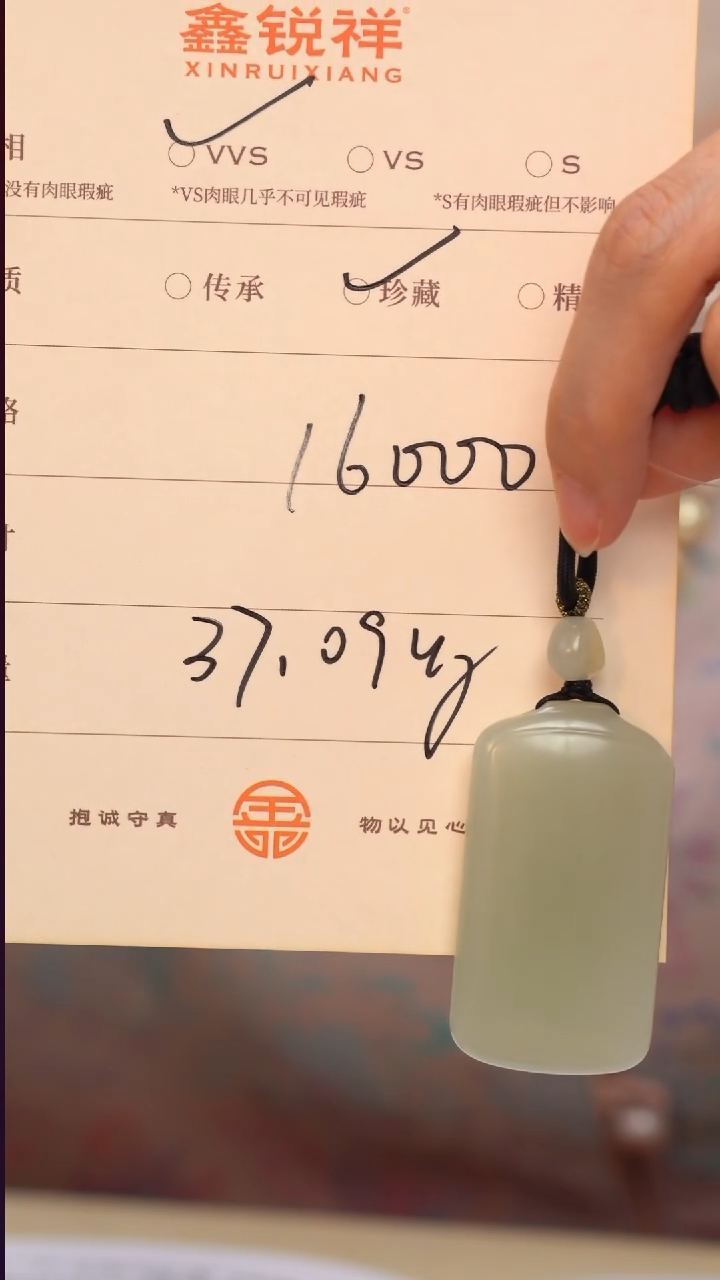 鑫锐祥®
XINRUIXIANG
相 VVS VS S
没有肉眼瑕疵 *VS肉眼几乎不可见瑕疵 *S有肉眼瑕疵但不影响
质 传承 珍藏 精
格 16000
寸
37.094g
抱诚守真 物以见心